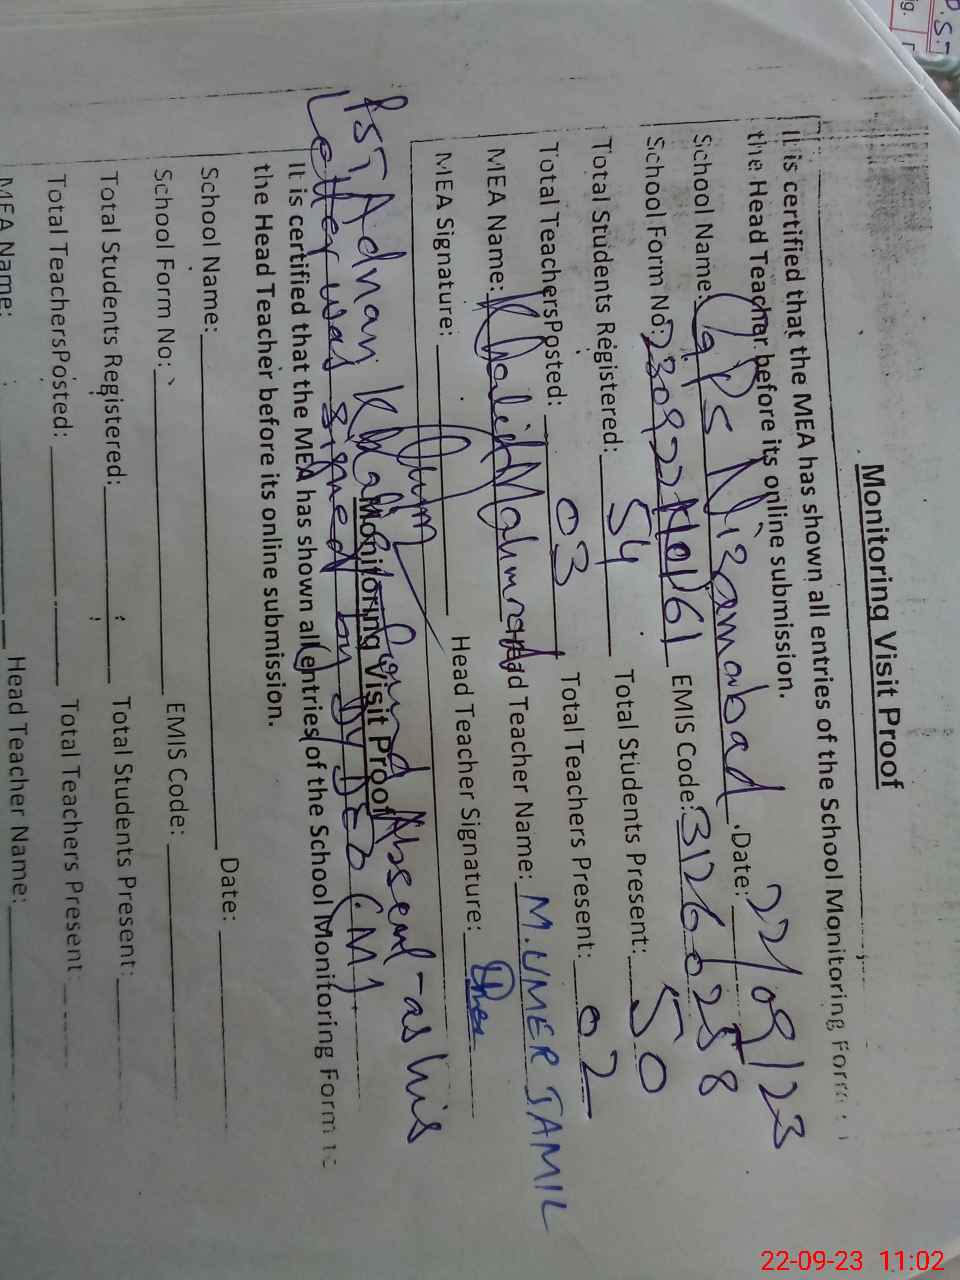 Monitoring Visit Proof
It is certified that the MEA has shown all entries of the School Monitoring Form
the Head Teacher before its online submission.
School Name: GPS Nizamabad Date: 22/09/23
School Form No: 230922 EMIS Code: 31260258
Total Students Registered: 54 Total Students Present: 50
Total TeachersPosted: 03 Total Teachers Present: 02
MEA Name: Khalid Mahmood Head Teacher Name: M.UMER JAMIL
MEA Signature: Head Teacher Signature:
PST Adnan Khalid found Absent - as his
Monitoring Visit Proof
Letter was signed by Dy DEO (M)
It is certified that the MEA has shown all entries of the School Monitoring Form to
the Head Teacher before its online submission.
School Name: Date:
School Form No: EMIS Code:
Total Students Registered: Total Students Present:
Total TeachersPosted: Total Teachers Present:
MEA Name: Head Teacher Name:
22-09-23 11:02